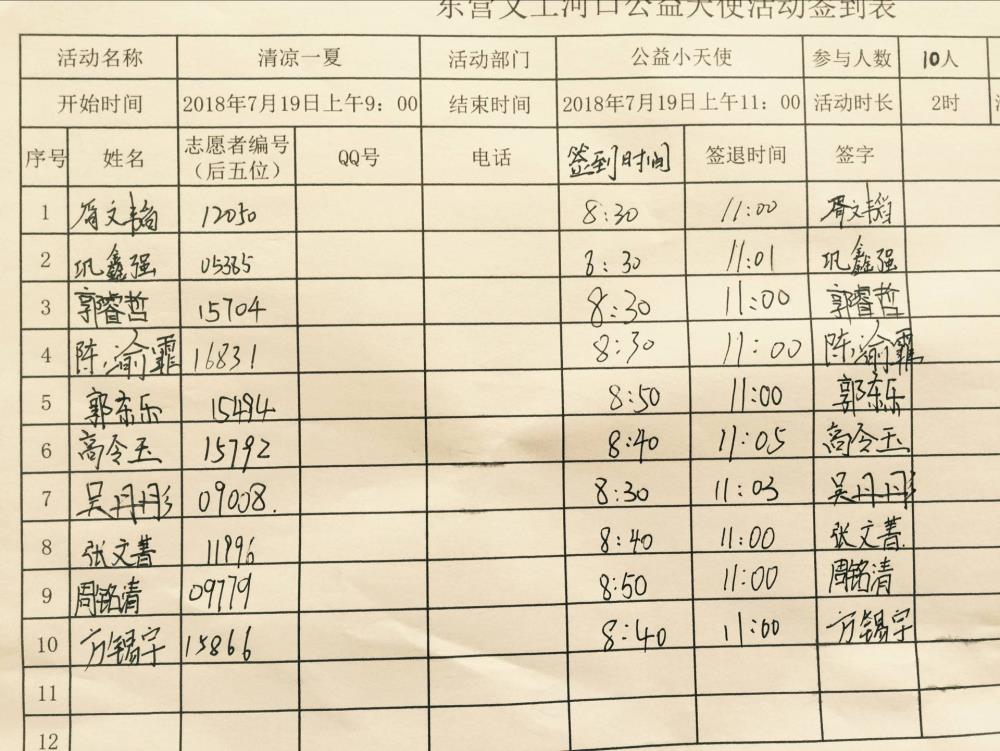 东营义工河口公益天使活动签到表
活动名称 清凉一夏 活动部门 公益小天使 参与人数 10人
开始时间 2018年7月19日上午9：00 结束时间 2018年7月19日上午11：00 活动时长 2时
序号 姓名 志愿者编号（后五位） QQ号 电话 签到时间 签退时间 签字
1 胥文韬 12050 8:30 11:00 胥文韬
2 巩鑫强 05365 8:30 11:01 巩鑫强
3 郭睿哲 15704 8:30 11:00 郭睿哲
4 陈渝霏 16831 8:30 11:00 陈渝霏
5 郭东乐 15494 8:50 11:00 郭东乐
6 高令玉 15792 8:40 11:05 高令玉
7 吴丹彤 09008. 8:30 11:03 吴丹彤
8 张文菁 11996 8:40 11:00 张文菁
9 周铭清 09779 8:50 11:00 周铭清
10 方锡宇 15866 8:40 11:00 方锡宇
11
12